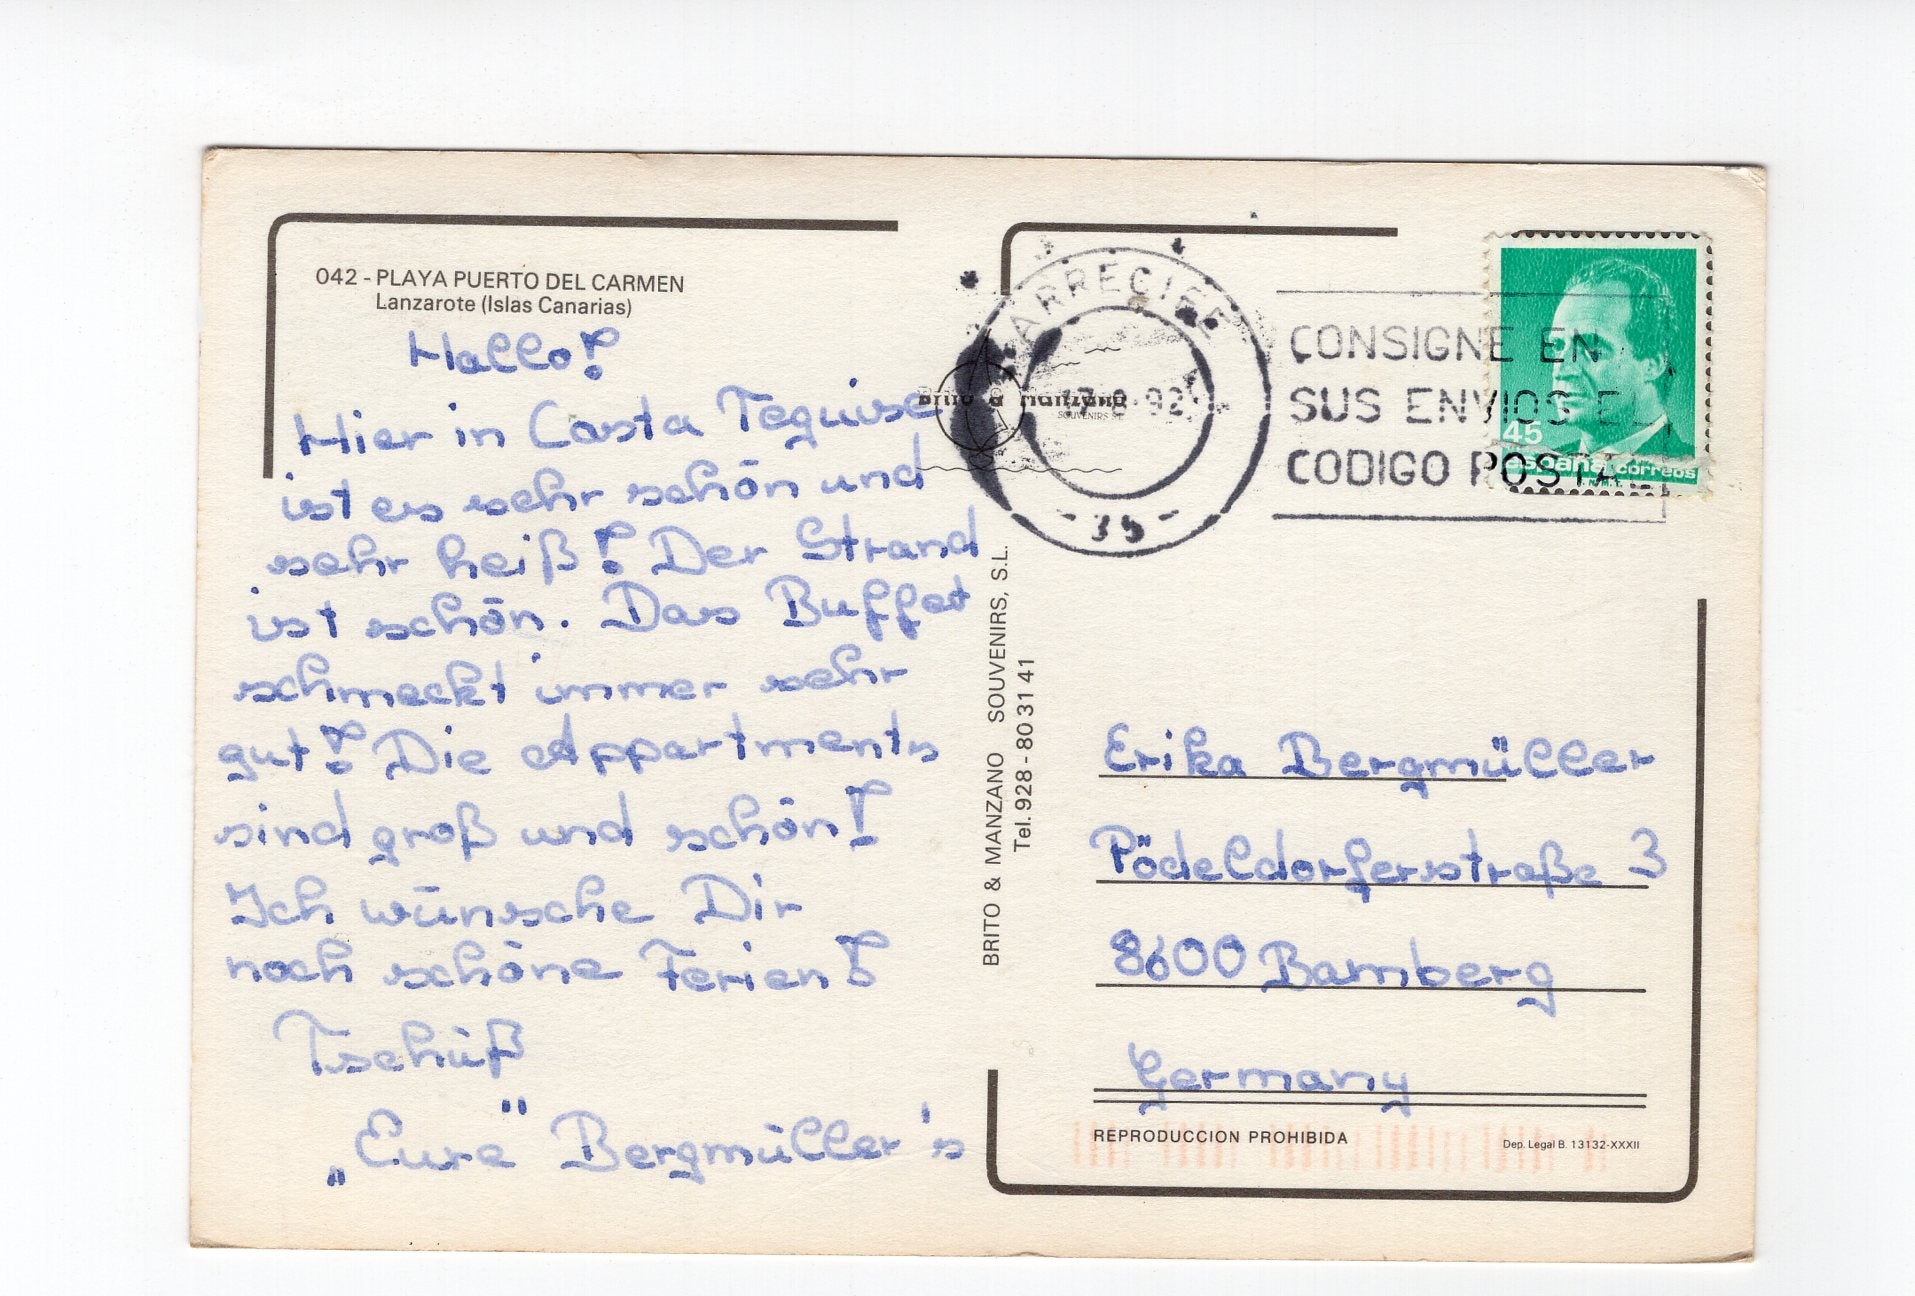 042 - PLAYA PUERTO DEL CARMEN
Lanzarote (Islas Canarias)
Hallo!
Hier in Costa Teguise
ist es sehr schön und
sehr heiß! Der Strand
ist schön. Das Buffet
schmeckt immer sehr
gut! Die Appartments
sind groß und schön!
Ich wünsche Dir
noch schöne Ferien!
Tschüß
„Eure" Bergmüller's
Brito & Manzano
SOUVENIRS S.L.
BRITO & MANZANO SOUVENIRS, S.L.
Tel. 928 - 80 31 41
ARRECIFE
92
- 35 -
CONSIGNE EN
SUS ENVIOS EL
CODIGO POSTAL
45
españa correos
F.N.M.T.
Erika Bergmüller
Pödeldorferstraße 3
8600 Bamberg
Germany
REPRODUCCION PROHIBIDA
Dep. Legal B. 13132-XXXII